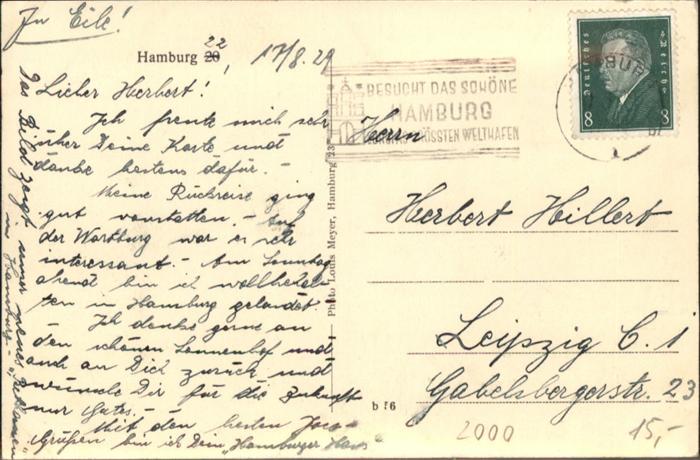 In Eile!
Hamburg 20, 22 17/8.29
Lieber Herbert!
Ich freute mich sehr
über Deine Karte und
danke bestens dafür. –
Meine Rückreise ging
gut vonstatten. – Auf
der Wartburg war es sehr
interessant. – Am Sonntag
abend bin ich wohlbehal-
ten in Hamburg gelandet.
Ich denke gerne an
den schönen Sonnenhof und
auch an Dich zurück und
wünsche Dir für die Zukunft
nur Gutes. –
Mit den besten
Grüßen bin ich Dein „Hamburger Hans“
Das Bild zeigt
in Hamburg –
Photo Louis Meyer, Hamburg 23
BESUCHT DAS SCHÖNE
HAMBURG
GRÖSSTEN WELTHAFEN
Deutsches Reich
8 8
Herrn
Herbert Hillert
Leipzig C. 1
Gabelsbergerstr. 23
b 16
2000
15,-